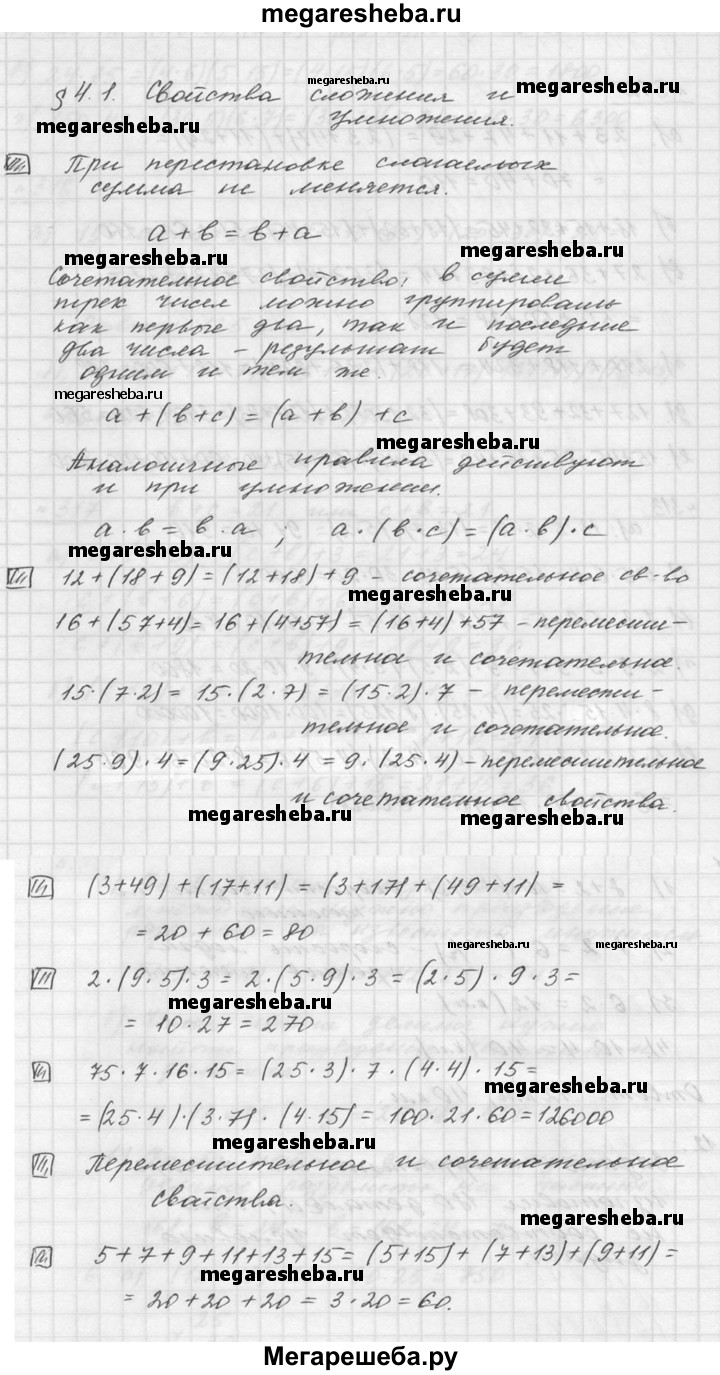 megaresheba.ru
megaresheba.ru
§ 4.1. Свойства сложения и megaresheba.ru
megaresheba.ru умножения.
При перестановке слагаемых
сумма не меняется.
a + b = b + a
megaresheba.ru megaresheba.ru
Сочетательное свойство: в сумме
трех чисел можно группировать
как первые два, так и последние
два числа – результат будет
одним и тем же.
megaresheba.ru
a + (b+c) = (a+b) + c
megaresheba.ru
Аналогичные правила действуют
и при умножении.
a · b = b · a ; a · (b · c) = (a · b) · c
megaresheba.ru
12 + (18 + 9) = (12 + 18) + 9 – сочетательное св-во
megaresheba.ru
16 + (57+4) = 16 + (4+57) = (16+4) + 57 – перемести-
тельное и сочетательное.
15 · (7 · 2) = 15 · (2 · 7) = (15 · 2) · 7 – перемести-
тельное и сочетательное.
(25 · 9) · 4 = (9 · 25) · 4 = 9 · (25 · 4) – переместительное
и сочетательное свойства.
megaresheba.ru megaresheba.ru
(3+49) + (17+11) = (3+17) + (49+11) =
= 20 + 60 = 80
megaresheba.ru megaresheba.ru
2 · (9 · 5) · 3 = 2 · (5 · 9) · 3 = (2 · 5) · 9 · 3 =
megaresheba.ru
= 10 · 27 = 270
75 · 7 · 16 · 15 = (25 · 3) · 7 · (4 · 4) · 15 =
megaresheba.ru
= (25 · 4) · (3 · 7) · (4 · 15) = 100 · 21 · 60 = 126000
megaresheba.ru
Переместительное и сочетательное
свойства.
megaresheba.ru
5 + 7 + 9 + 11 + 13 + 15 = (5+15) + (7+13) + (9+11) =
megaresheba.ru
= 20 + 20 + 20 = 3 · 20 = 60.
Мегарешеба.ру